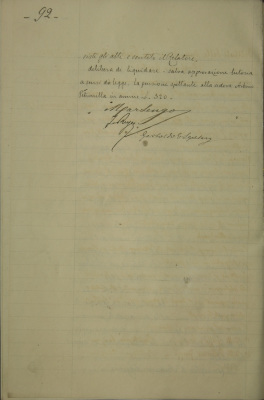 - 92. -
visti gli atti e sentito il Relatore,
delibera di liquidare - salva approvazione tutoria
a sensi di legge. la pensione spettante alla vedova
in annue L. 320.